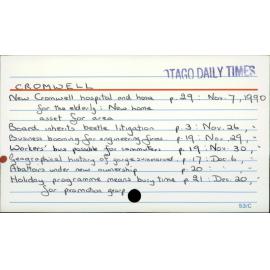 OTAGO DAILY TIMES
CROMWELL
New Cromwell hospital and home p. 29 : Nov. 7, 1990
for the elderly : New home
asset for area
Board inherits beetle litigation p. 3 : Nov. 26, "
Business booming for engineering firms p. 19 : Nov. 29, "
Workers' bus possible for commuters p. 19 : Nov. 30, "
Geographical history of gorge p. 17 : Dec. 6, "
Abattoirs under new ownership p. 20 " "
Holiday programme means busy time p. 21 : Dec. 20, "
for promotion group
53/C